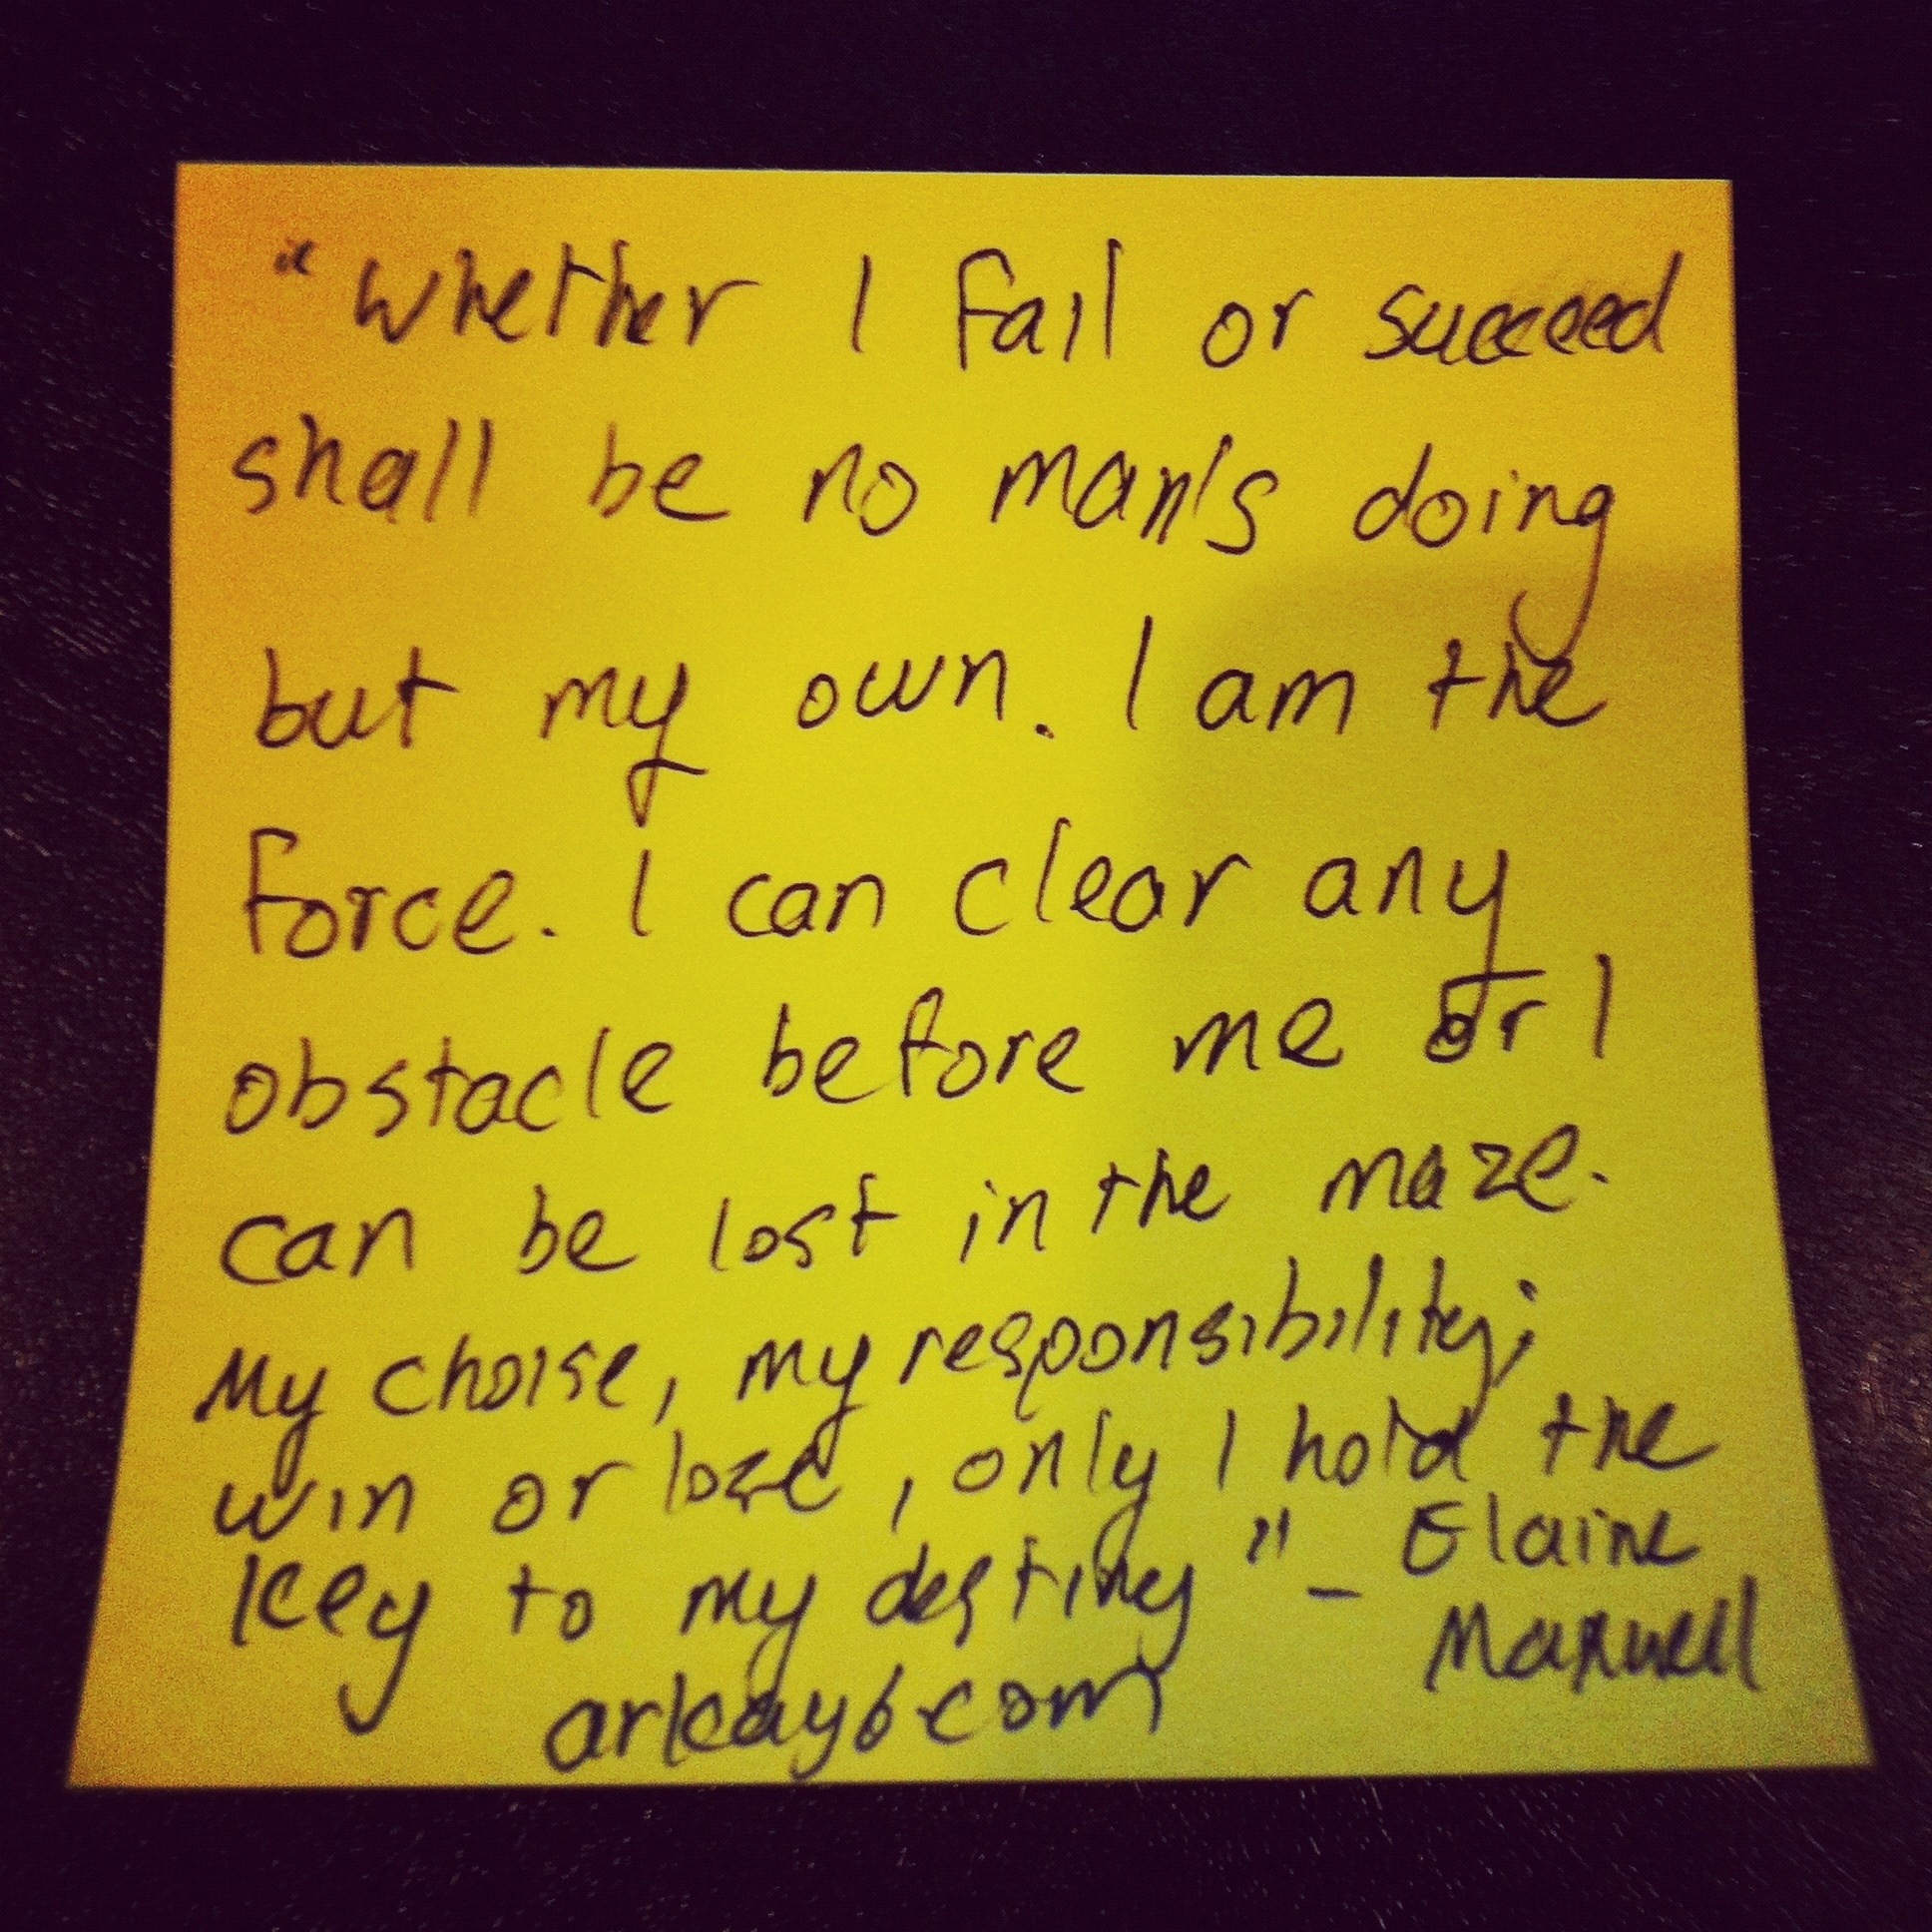 "Whether I fail or succeed
shall be no man's doing
but my own. I am the
force. I can clear any
obstacle before me or I
can be lost in the maze.
My choise, my responsibility;
win or lose, only I hold the
key to my destiny" - Elaine
Maxwell
arkay6.com